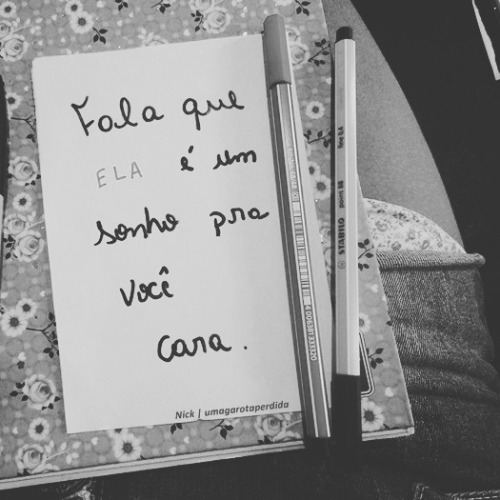 Fala que
ELA é um
sonho pra
você
cara.
Nick | umagarotaperdida
STABILO point 88 fine 0,4